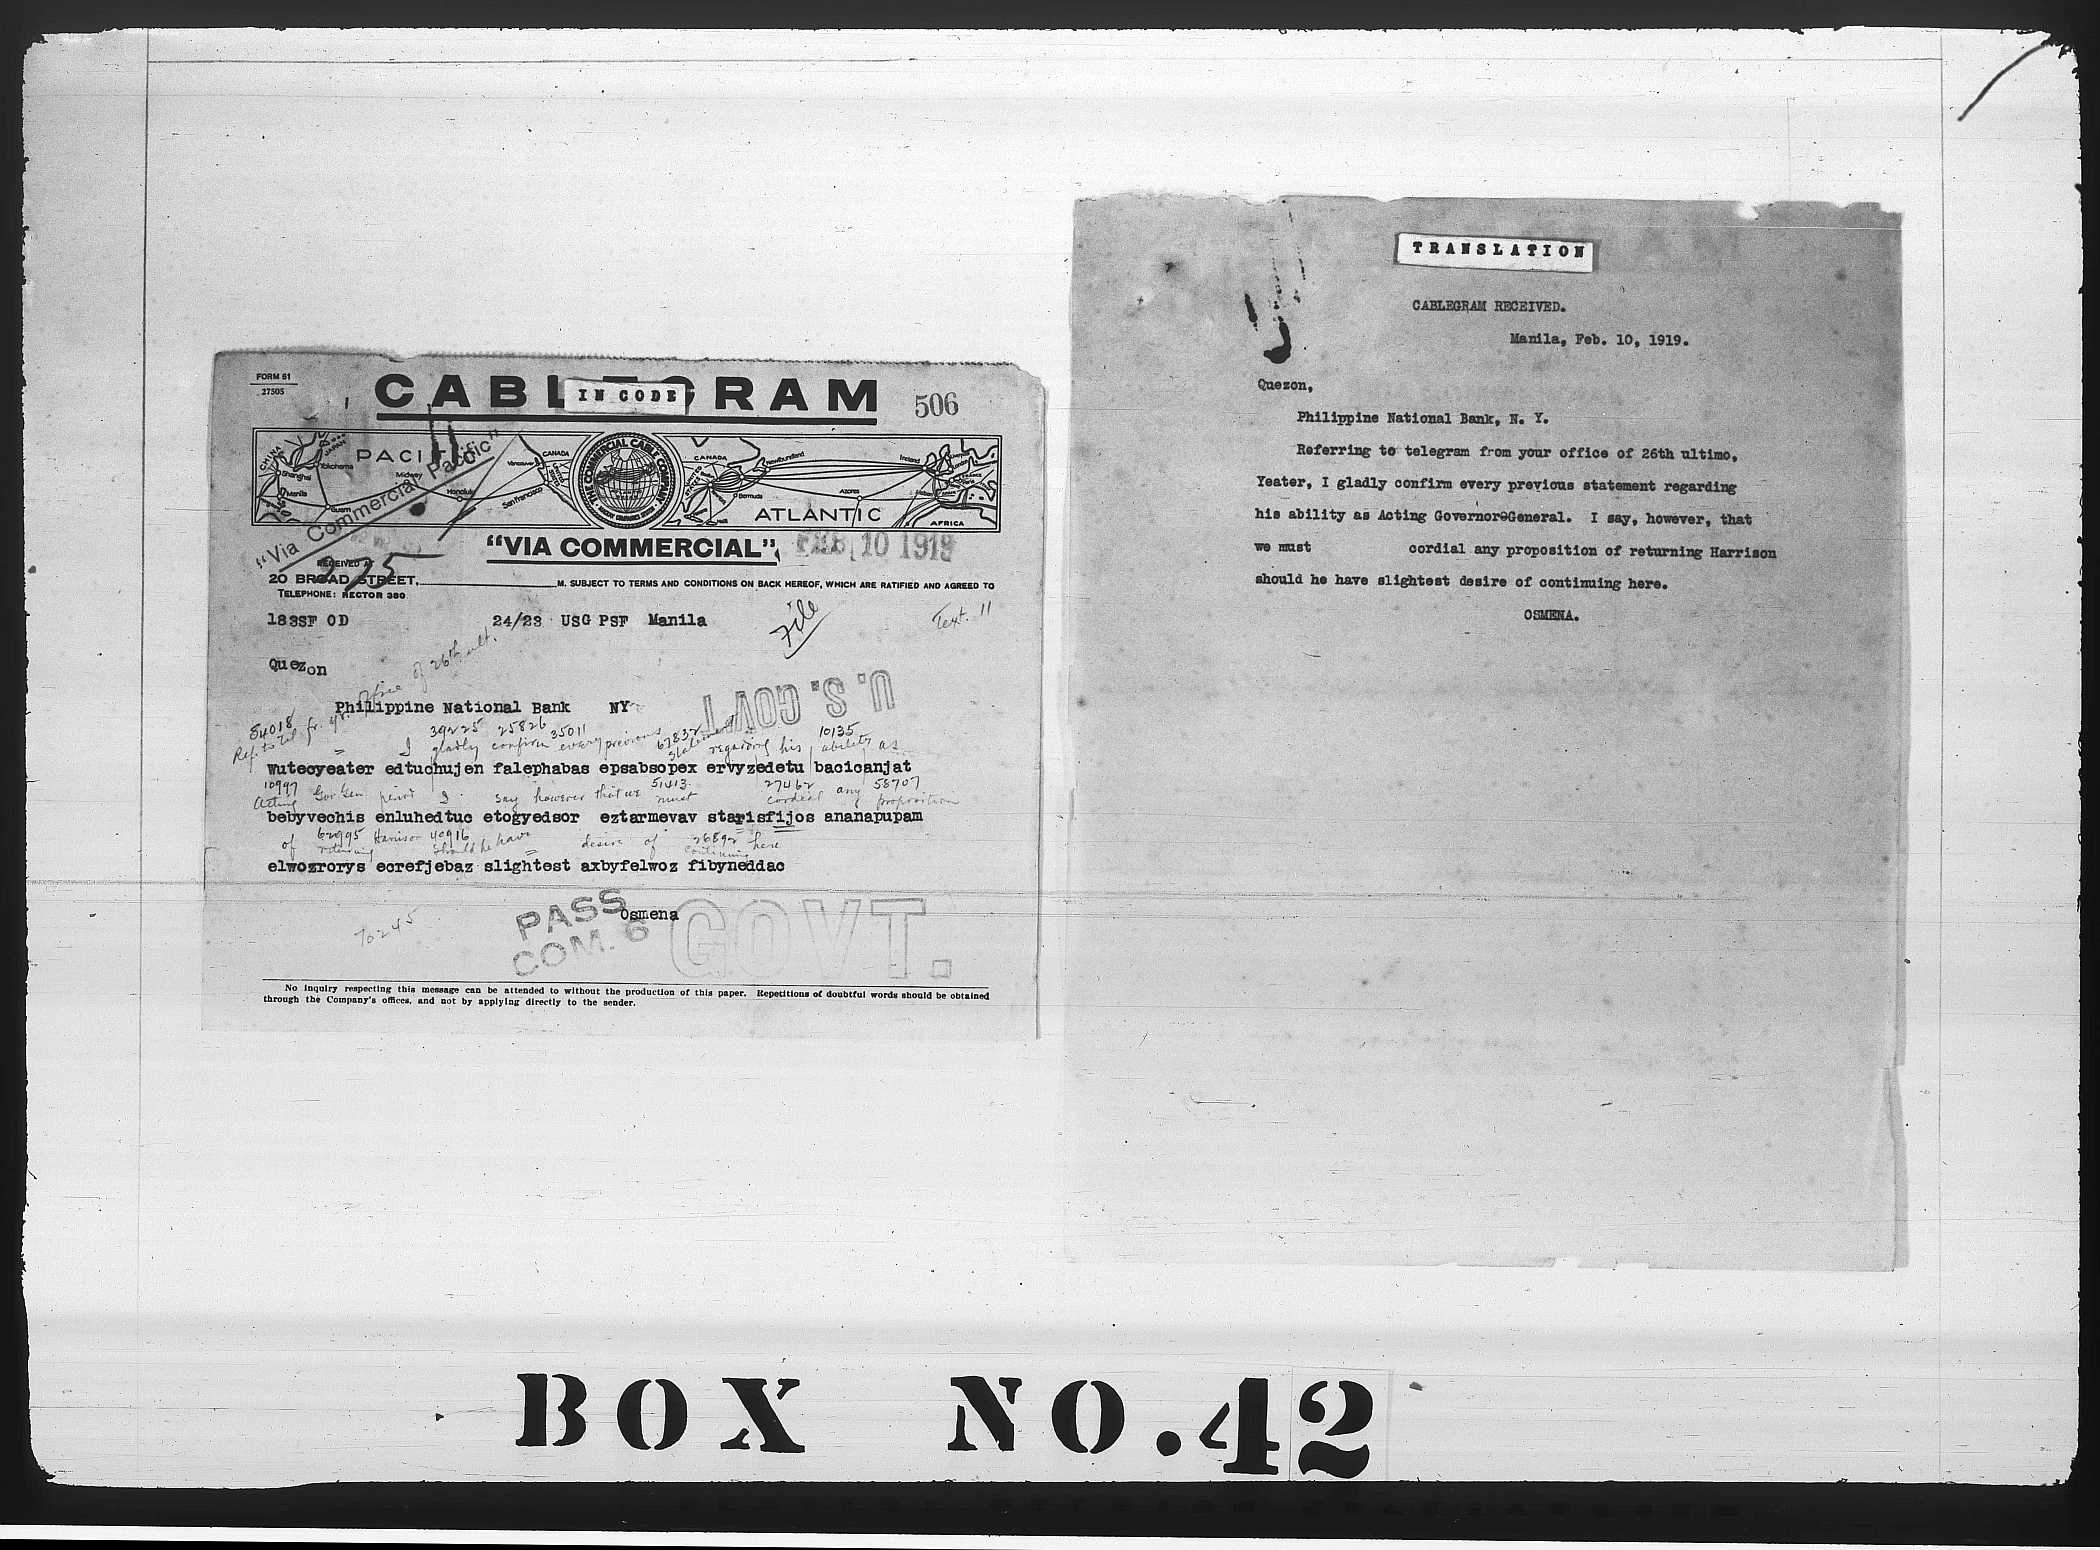 FORM 61
27505
CABLEGRAM
IN CODE
506
CHINA
JAPAN
Yokohama
Shanghai
Manila
Guam
PACIFIC
Midway
Honolulu
Vancouver
San Francisco
CANADA
THE COMMERCIAL CABLE COMPANY
CANADA
Newfoundland
Bermuda
Azores
Ireland
ATLANTIC
AFRICA
"Via Commercial Pacific"
"VIA COMMERCIAL"
FEB 10 1919
275
RECEIVED AT
20 BROAD STREET, M. SUBJECT TO TERMS AND CONDITIONS ON BACK HEREOF, WHICH ARE RATIFIED AND AGREED TO
TELEPHONE: RECTOR 380
183SF OD 24/23 USG PSF Manila
File
Text. 11
Quezon
office of 26th ult.
U.S. GOVT
Philippine National Bank NY
84018 39225 25826 35011 67832 10135
Ref. to tel fr. yr. I gladly confirm every previous statement regarding his ability as
Wutecyeater edtuchujen falephabas epsabsopex ervyzedetu bacicanjat
10997 51413 27462 58707
Acting Gov Gen period I say however that we must cordial any proposition
bebyvechis enluhedtuc etogyedsor eztarmevav starisfijos ananapupam
62995 40916 26892
of returning Harrison should he have desire of continuing here
elwozrorys ecrefjebaz slightest axbyfelwoz fibyneddac
Osmena
PASS
COM. 6
GOVT.
To 245
No inquiry respecting this message can be attended to without the production of this paper. Repetitions of doubtful words should be obtained
through the Company's offices, and not by applying directly to the sender.
TRANSLATION
CABLEGRAM RECEIVED.
Manila, Feb. 10, 1919.
Quezon,
Philippine National Bank, N. Y.
Referring to telegram from your office of 26th ultimo,
Yeater, I gladly confirm every previous statement regarding
his ability as Acting GovernorOGeneral. I say, however, that
we must cordial any proposition of returning Harrison
should he have slightest desire of continuing here.
OSMENA.
BOX NO. 42